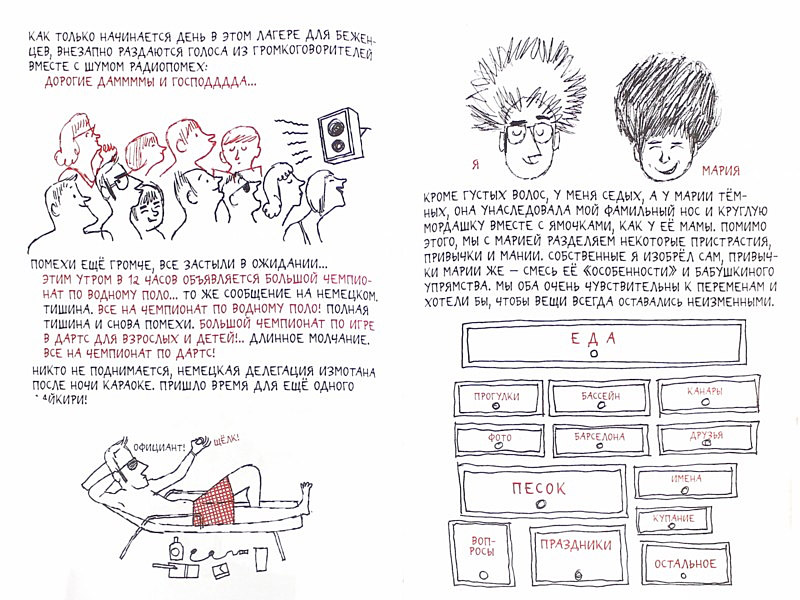 КАК ТОЛЬКО НАЧИНАЕТСЯ ДЕНЬ В ЭТОМ ЛАГЕРЕ ДЛЯ БЕЖЕН-
ЦЕВ, ВНЕЗАПНО РАЗДАЮТСЯ ГОЛОСА ИЗ ГРОМКОГОВОРИТЕЛЕЙ
ВМЕСТЕ С ШУМОМ РАДИОПОМЕХ:
ДОРОГИЕ ДАММММЫ И ГОСПОДДДДА...
ПОМЕХИ ЕЩЁ ГРОМЧЕ, ВСЕ ЗАСТЫЛИ В ОЖИДАНИИ...
ЭТИМ УТРОМ В 12 ЧАСОВ ОБЪЯВЛЯЕТСЯ БОЛЬШОЙ ЧЕМПИО-
НАТ ПО ВОДНОМУ ПОЛО... ТО ЖЕ СООБЩЕНИЕ НА НЕМЕЦКОМ.
ТИШИНА. ВСЕ НА ЧЕМПИОНАТ ПО ВОДНОМУ ПОЛО! ПОЛНАЯ
ТИШИНА И СНОВА ПОМЕХИ. БОЛЬШОЙ ЧЕМПИОНАТ ПО ИГРЕ
В ДАРТС ДЛЯ ВЗРОСЛЫХ И ДЕТЕЙ!.. ДЛИННОЕ МОЛЧАНИЕ.
ВСЕ НА ЧЕМПИОНАТ ПО ДАРТС!
НИКТО НЕ ПОДНИМАЕТСЯ, НЕМЕЦКАЯ ДЕЛЕГАЦИЯ ИЗМОТАНА
ПОСЛЕ НОЧИ КАРАОКЕ. ПРИШЛО ВРЕМЯ ДЛЯ ЕЩЁ ОДНОГО
ОФИЦИАНТ!
ЩЁЛК!
Я
МАРИЯ
КРОМЕ ГУСТЫХ ВОЛОС, У МЕНЯ СЕДЫХ, А У МАРИИ ТЁМ-
НЫХ, ОНА УНАСЛЕДОВАЛА МОЙ ФАМИЛЬНЫЙ НОС И КРУГЛУЮ
МОРДАШКУ ВМЕСТЕ С ЯМОЧКАМИ, КАК У ЕЁ МАМЫ. ПОМИМО
ЭТОГО, МЫ С МАРИЕЙ РАЗДЕЛЯЕМ НЕКОТОРЫЕ ПРИСТРАСТИЯ,
ПРИВЫЧКИ И МАНИИ. СОБСТВЕННЫЕ Я ИЗОБРЁЛ САМ, ПРИВЫЧ-
КИ МАРИИ ЖЕ – СМЕСЬ ЕЁ «ОСОБЕННОСТИ» И БАБУШКИНОГО
УПРЯМСТВА. МЫ ОБА ОЧЕНЬ ЧУВСТВИТЕЛЬНЫ К ПЕРЕМЕНАМ И
ХОТЕЛИ БЫ, ЧТОБЫ ВЕЩИ ВСЕГДА ОСТАВАЛИСЬ НЕИЗМЕННЫМИ.
ЕДА
ПРОГУЛКИ
БАССЕЙН
КАНАРЫ
ФОТО
БАРСЕЛОНА
ДРУЗЬЯ
ПЕСОК
ИМЕНА
КУПАНИЕ
ВОП-
РОСЫ
ПРАЗДНИКИ
ОСТАЛЬНОЕ